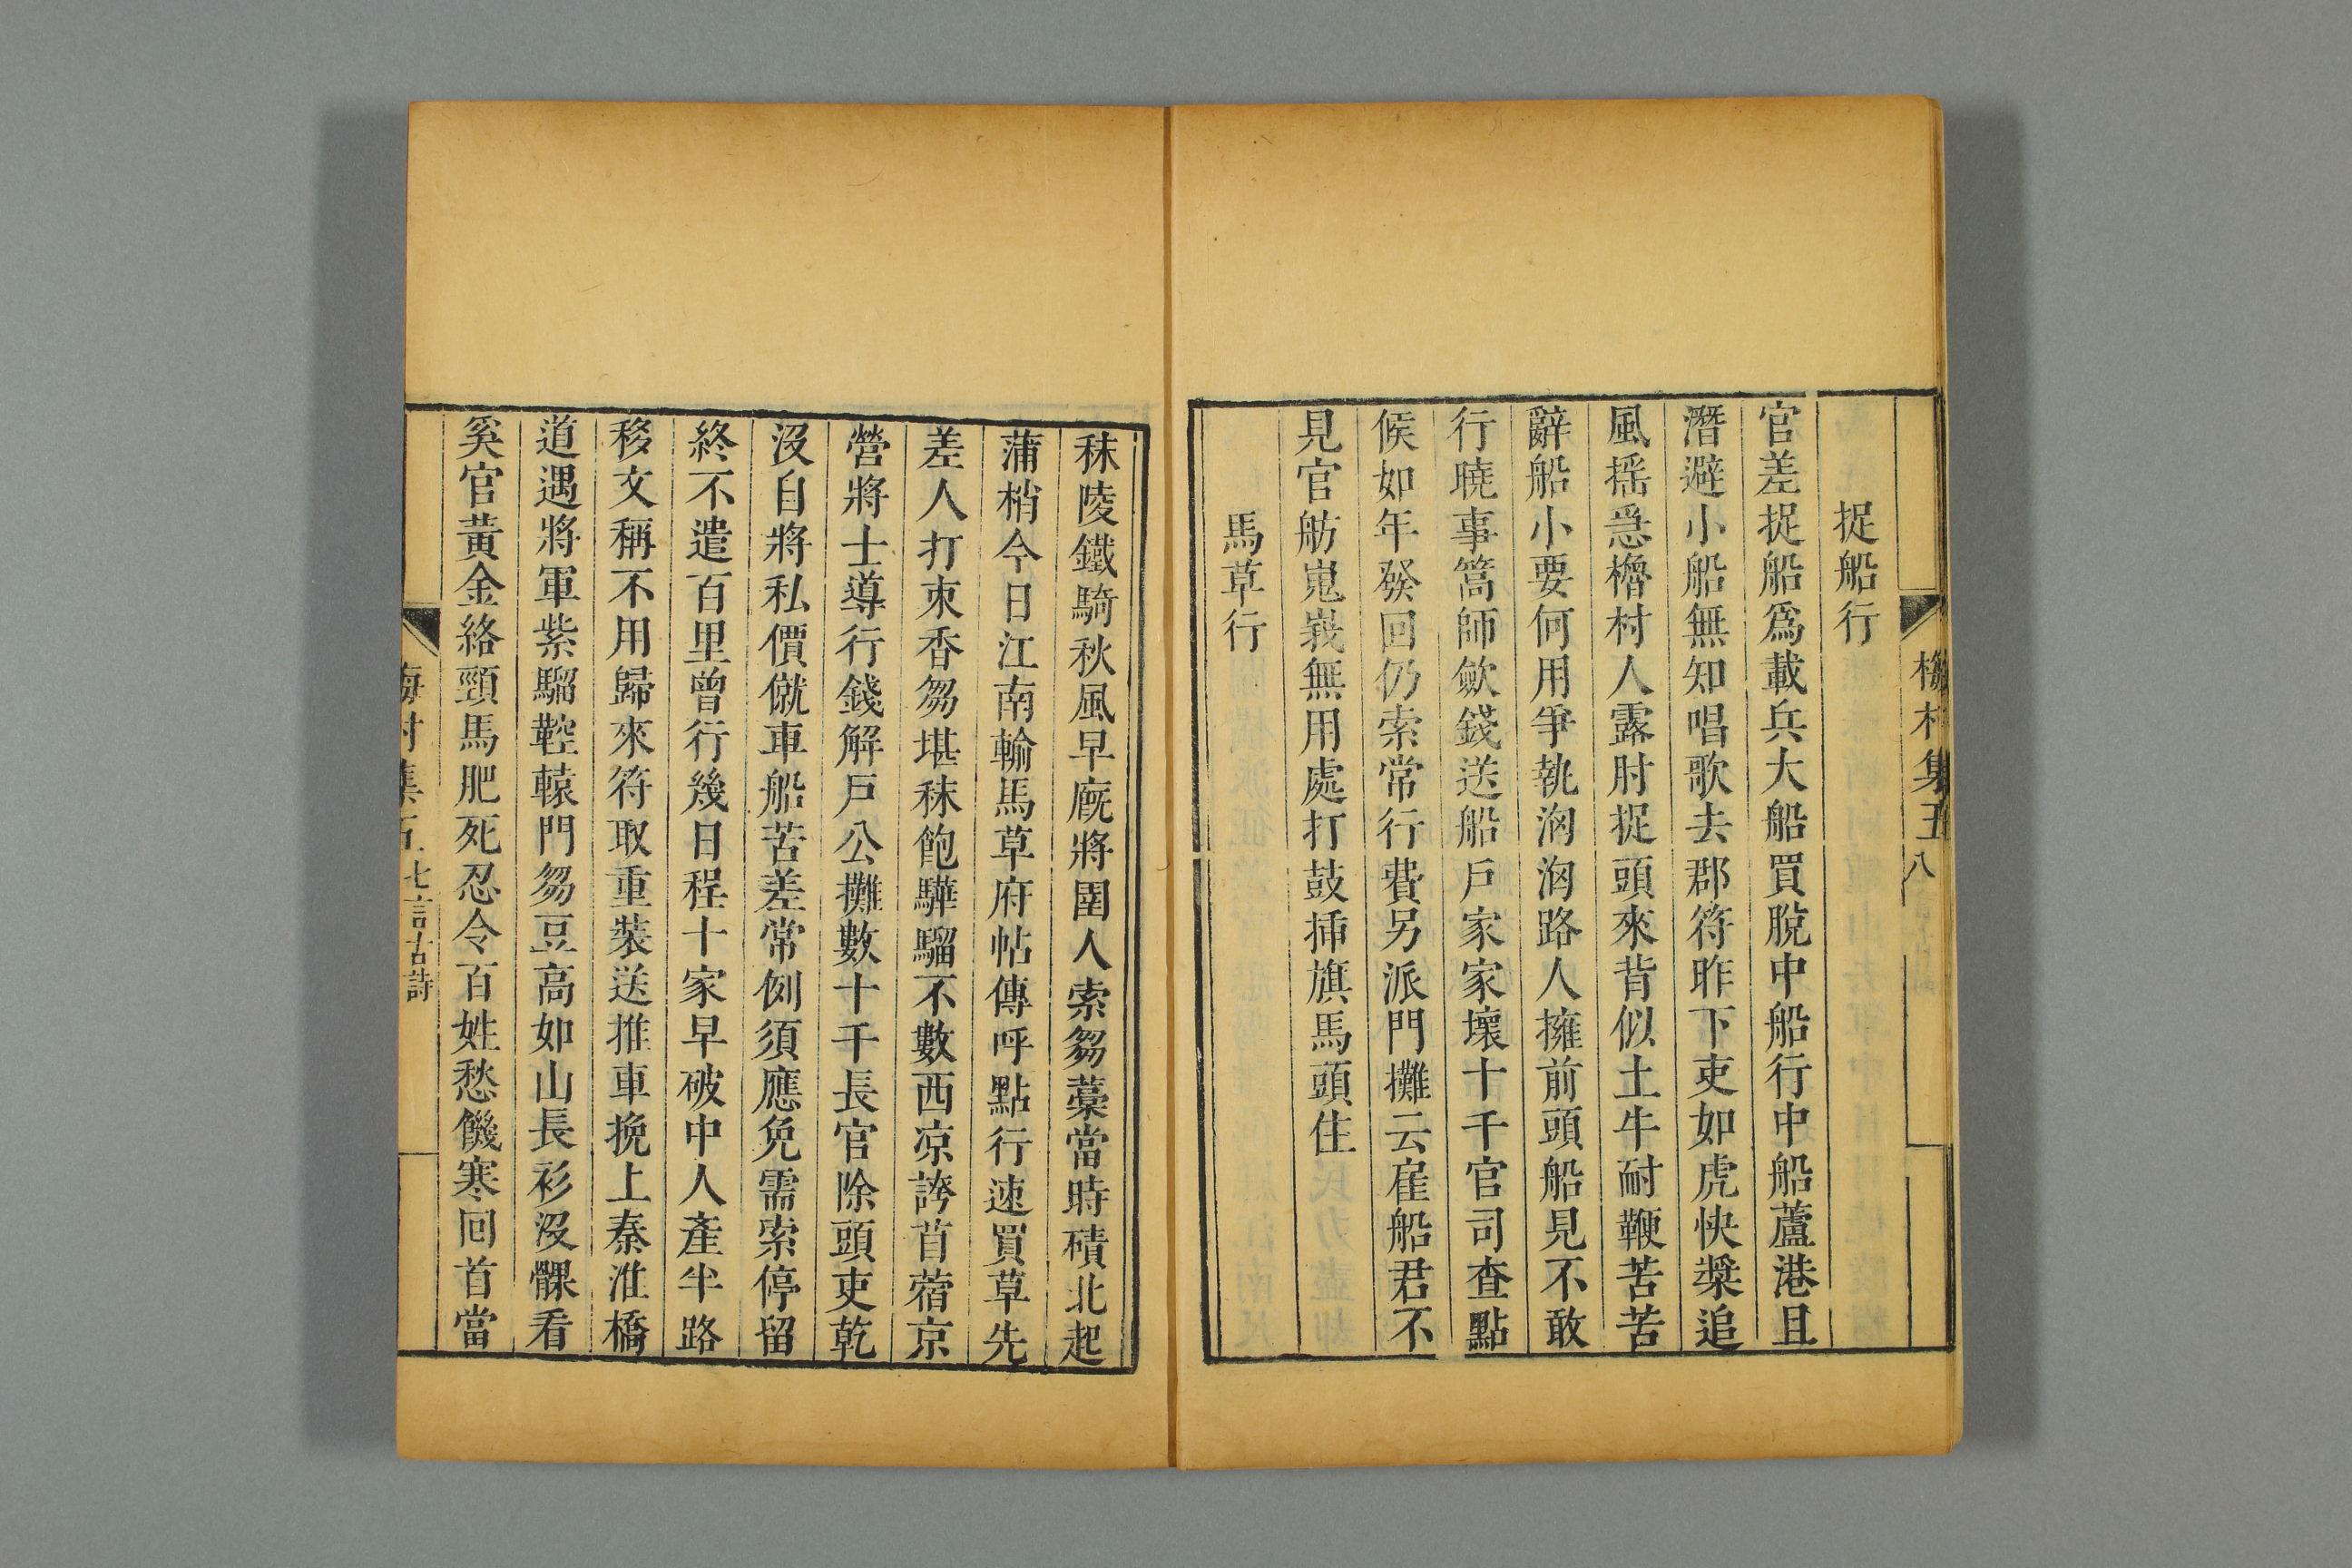 梅村集五 八
捉船行
官差捉船爲載兵大船買脫中船行中船蘆港且
潛避小船無知唱歌去郡符昨下吏如虎快槳追
風搖急櫓村人露肘捉頭來背似土牛耐鞭苦苦
辭船小要何用爭執洶洶路人擁前頭船見不敢
行曉事篙師斂錢送船戶家家壞十千官司查點
候如年發回仍索常行費另派門攤云雇船君不
見官舫嵬峩無用處打鼓揷旗馬頭住
馬草行
秣陵鐵騎秋風早廐將圉人索芻藁當時磧北起
蒲梢今日江南輸馬草府帖傳呼點行速買草先
差人打束香芻堪秣飽驊騮不數西凉誇苜蓿京
營將士導行錢解戶公攤數十千長官除頭吏乾
沒自將私價僦車船苦差常例須應免需索停留
終不遣百里曾行幾日程十家早破中人產半路
移文稱不用歸來符取重裝送推車挽上秦淮橋
道遇將軍紫騮鞚轅門芻豆高如山長衫沒髁看
奚官黃金絡頸馬肥死忍令百姓愁饑寒回首當
梅村集五 七言古詩